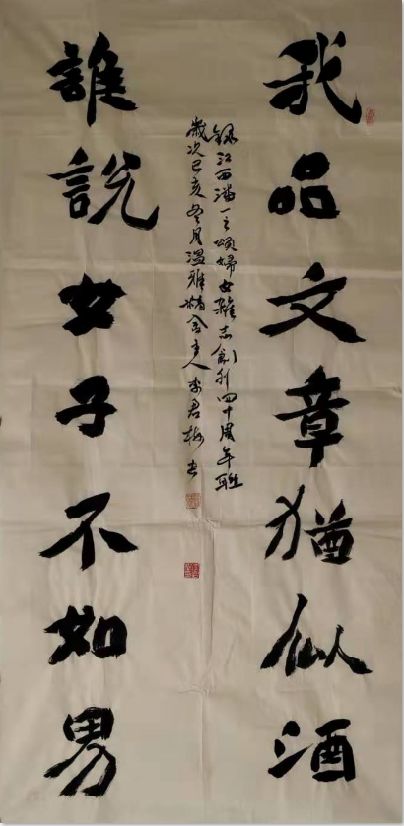 我品文章犹似酒
錄江西潘一之頌婦女雜志創刊四十周年聯
歲次己亥冬月溫雅精舍主人李君梅书
誰說女子不如男